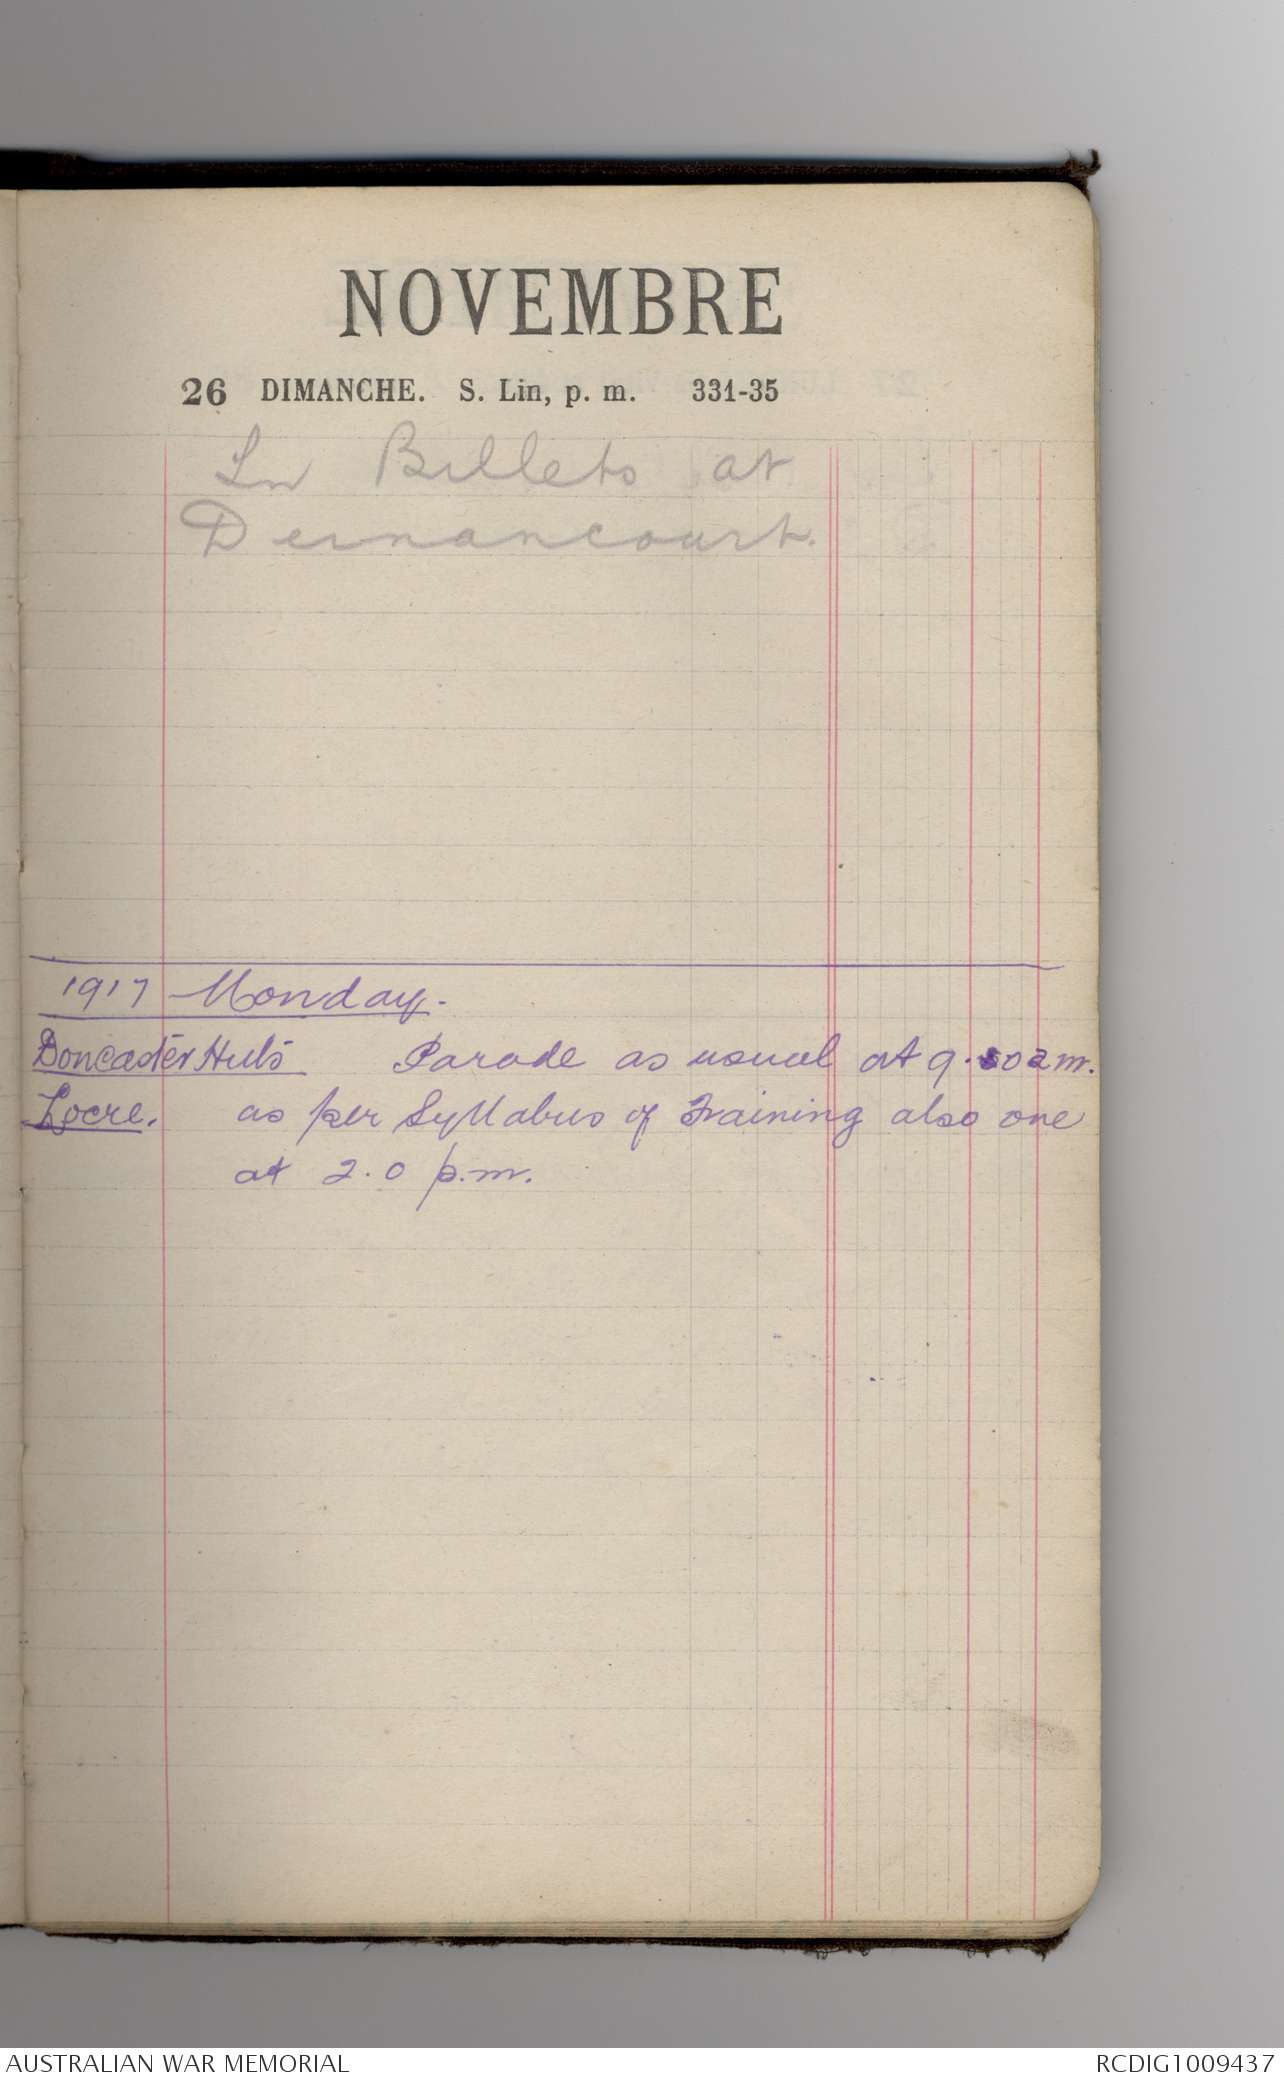 NOVEMBRE
26 DIMANCHE. S. Lin, p. m. 331-35
In Billets at
Dernancourt.
1917 Monday.
Doncaster Huts Parade as usual at 9. 0 a m.
Locre. as per Syllabus of Training also one
at 2.0 p.m.
AUSTRALIAN WAR MEMORIAL RCDIG1009437